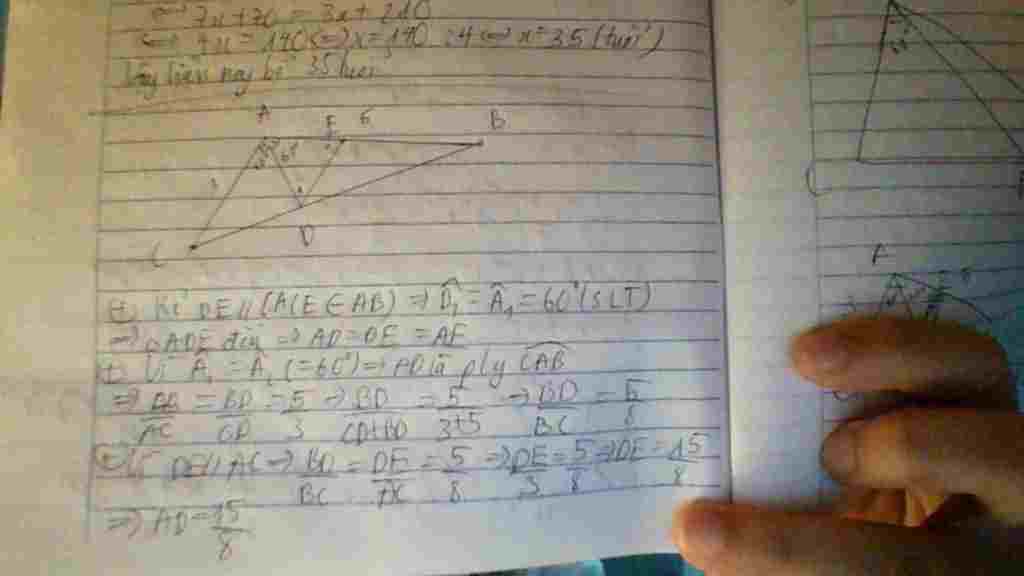 ⇔ 7x+70 = 3x+210
⇔ 4x = 140 ⇔ x = 140 : 4 ⇔ x = 35 (tuổi)
Vậy hiện nay bố 35 tuổi
A
E
6
B
60°
3
C
D
+) Kẻ DE // CA (E ∈ AB) ⇒ D̂₁ = Â₁ = 60° (SLT)
⇒ △ADE đều ⇒ AD = DE = AE
+) Vì Â₁ = Â₂ (=60°) ⇒ AD là p/g CAB
⇒ AB/AC = BD/CD = 5/3 ⇒ BD/CD+BD = 5/3+5 ⇒ BD/BC = 5/8
+) Vì DE // AC ⇒ BD/BC = DE/AC = 5/8 ⇒ DE/3 = 5/8 ⇒ DE = 15/8
⇒ AD = 15/8
A